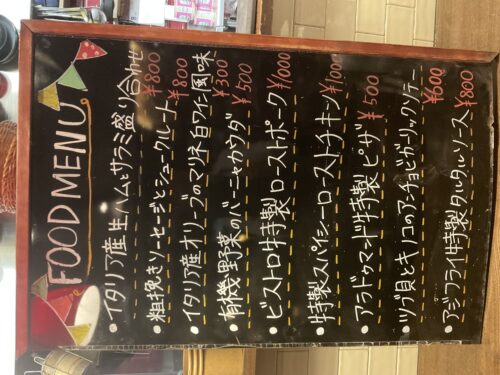 FOOD MENU
・イタリア産生ハムとサラミ盛り合わせ ¥800
・粗挽きソーセージとシュークルート ¥800
・イタリア産オリーブのマリネ白ワイン風味 ¥300
・有機野菜のバーニャカウダ ¥500
・ビストロ特製ローストポーク ¥1000
・特製スパイシーローストチキン ¥1000
・アラドゥマンド特製ピザ ¥500
・ツブ貝とキノコのアンチョビガーリックソテー ¥600
・アジフライ特製タルタルソース ¥800